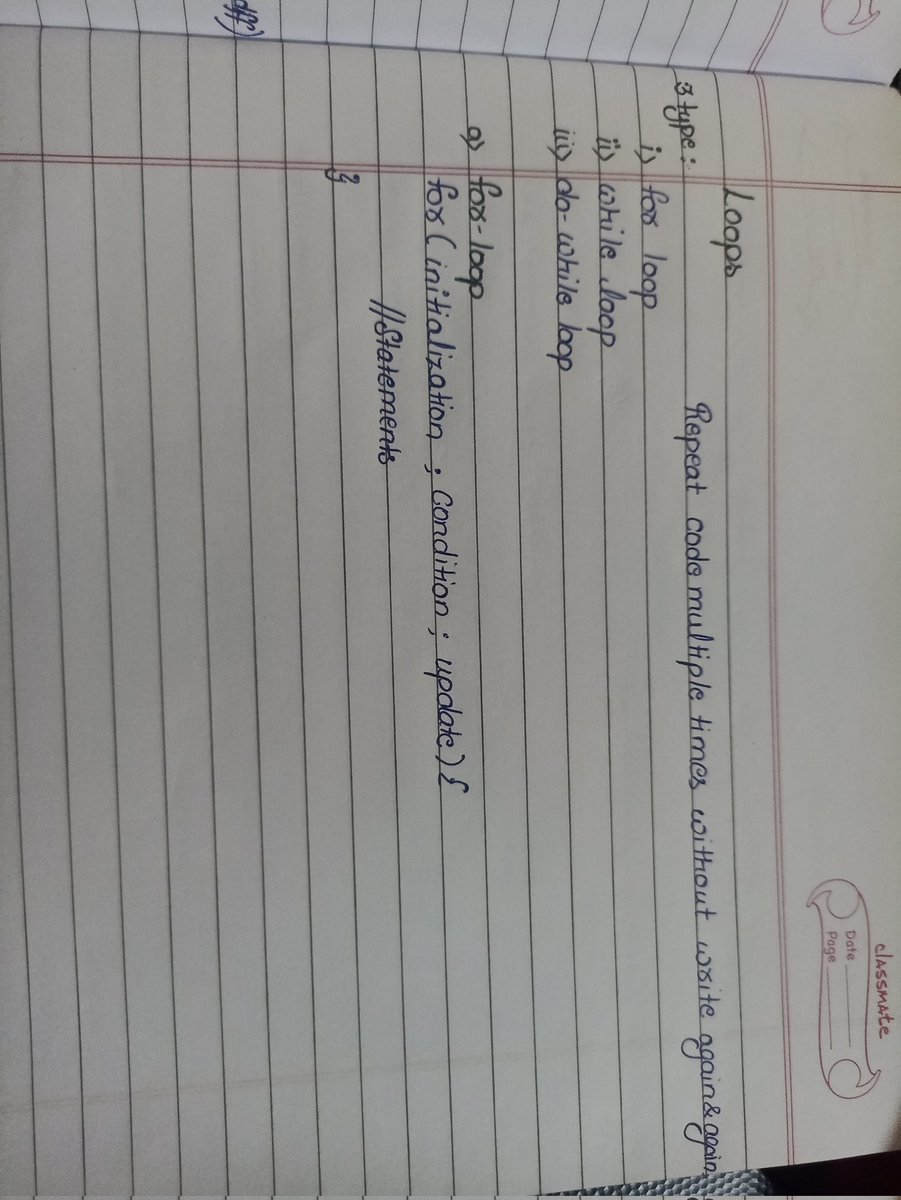 classmate
Date
Page
Loops
Repeat code multiple times without write again & again.
3 type:
i) for loop
ii) while loop
iii) do-while loop
a) for-loop
for (initialization ; condition ; update) {
//Statements
}